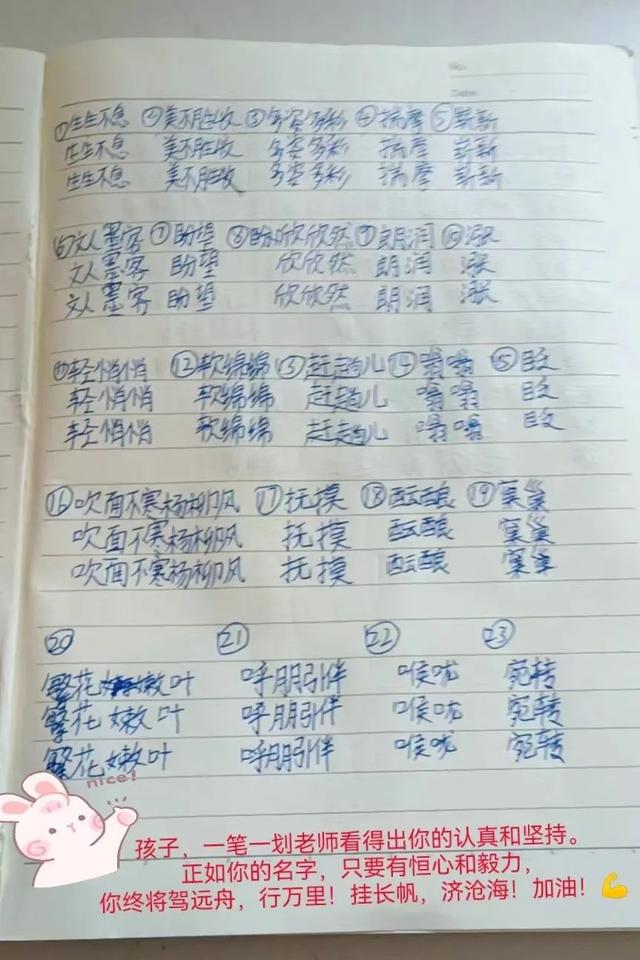 No:
Date:
①生生不息 ②美不胜收 ③多姿多彩 ④揣摩 ⑤崭新
生生不息 美不胜收 多姿多彩 揣摩 崭新
生生不息 美不胜收 多姿多彩 揣摩 崭新
⑥文人墨客 ⑦盼望 ⑧盼欣欣然 ⑨朗润 ⑩涨
文人墨客 盼望 欣欣然 朗润 涨
文人墨客 盼望 欣欣然 朗润 涨
⑪轻悄悄 ⑫软绵绵 ⑬赶趟儿 ⑭嗡嗡
轻悄悄 软绵绵 赶趟儿 嗡嗡
轻悄悄 软绵绵 赶趟儿 嗡嗡
⑯吹面不寒杨柳风 ⑰抚摸 ⑱酝酿 ⑲窠巢
吹面不寒杨柳风 抚摸 酝酿 窠巢
吹面不寒杨柳风 抚摸 酝酿 窠巢
⑳ ㉑ ㉒ ㉓
繁花嫩叶 呼朋引伴 喉咙 宛转
繁花嫩叶 呼朋引伴 喉咙 宛转
繁花嫩叶 呼朋引伴 喉咙 宛转
nice!
孩子，一笔一划老师看得出你的认真和坚持。
正如你的名字，只要有恒心和毅力，
你终将驾远舟，行万里！挂长帆，济沧海！加油！💪